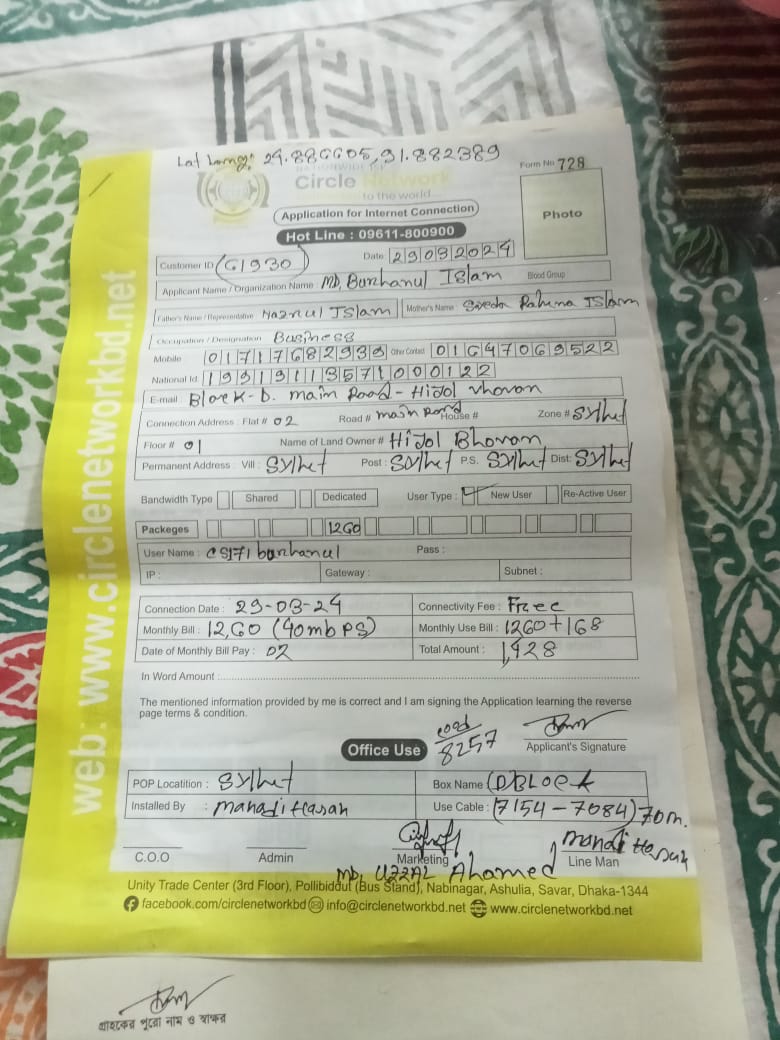 Lat Long: 24.886605, 91.882389
Form No 728
NATIONWIDE ISP
Circle Network
to the world
Photo
Application for Internet Connection
Hot Line : 09611-800900
Customer ID (61930) Date 29032024
Applicant Name / Organization Name Md, Burhanul Islam Blood Group
Father's Name / Representative Nazrul Islam Mother's Name : Syeda Rahena Islam
Occupation / Designation Business
Mobile 01717682939 Other Contact 01647069522
National Id 19919113571000122
E-mail Block-D. main Road-Hijol Vhovon
Connection Address : Flat # 02 Road # main Road House # Zone # Sylhet
Floor # 01 Name of Land Owner # Hijol Bhovon
Permanent Address : Vill : Sylhet Post : Sylhet P.S. Sylhet Dist: Sylhet
Bandwidth Type Shared Dedicated User Type : ✓ New User Re-Active User
Packeges 1260
User Name : CS171burhanul Pass :
IP : Gateway : Subnet :
Connection Date : 29-03-24 Connectivity Fee : Free
Monthly Bill : 12,60 (40mbps) Monthly Use Bill : 1260+168
Date of Monthly Bill Pay : 02 Total Amount : 1,428
In Word Amount :
The mentioned information provided by me is correct and I am signing the Application learning the reverse
page terms & condition.
Office Use
8257
Applicant's Signature
POP Locatition : Sylhet Box Name (D Block
Installed By : mahadi Hasan Use Cable : (7154-7084) 70m.
C.O.O Admin Marketing Line Man mahadi Hasan
Md, Uzzal Ahamed
Unity Trade Center (3rd Floor), Pollibiddut (Bus Stand), Nabinagar, Ashulia, Savar, Dhaka-1344
facebook.com/circlenetworkbd info@circlenetworkbd.net www.circlenetworkbd.net
web: www.circlenetworkbd.net
গ্রাহকের পুরো নাম ও স্বাক্ষর